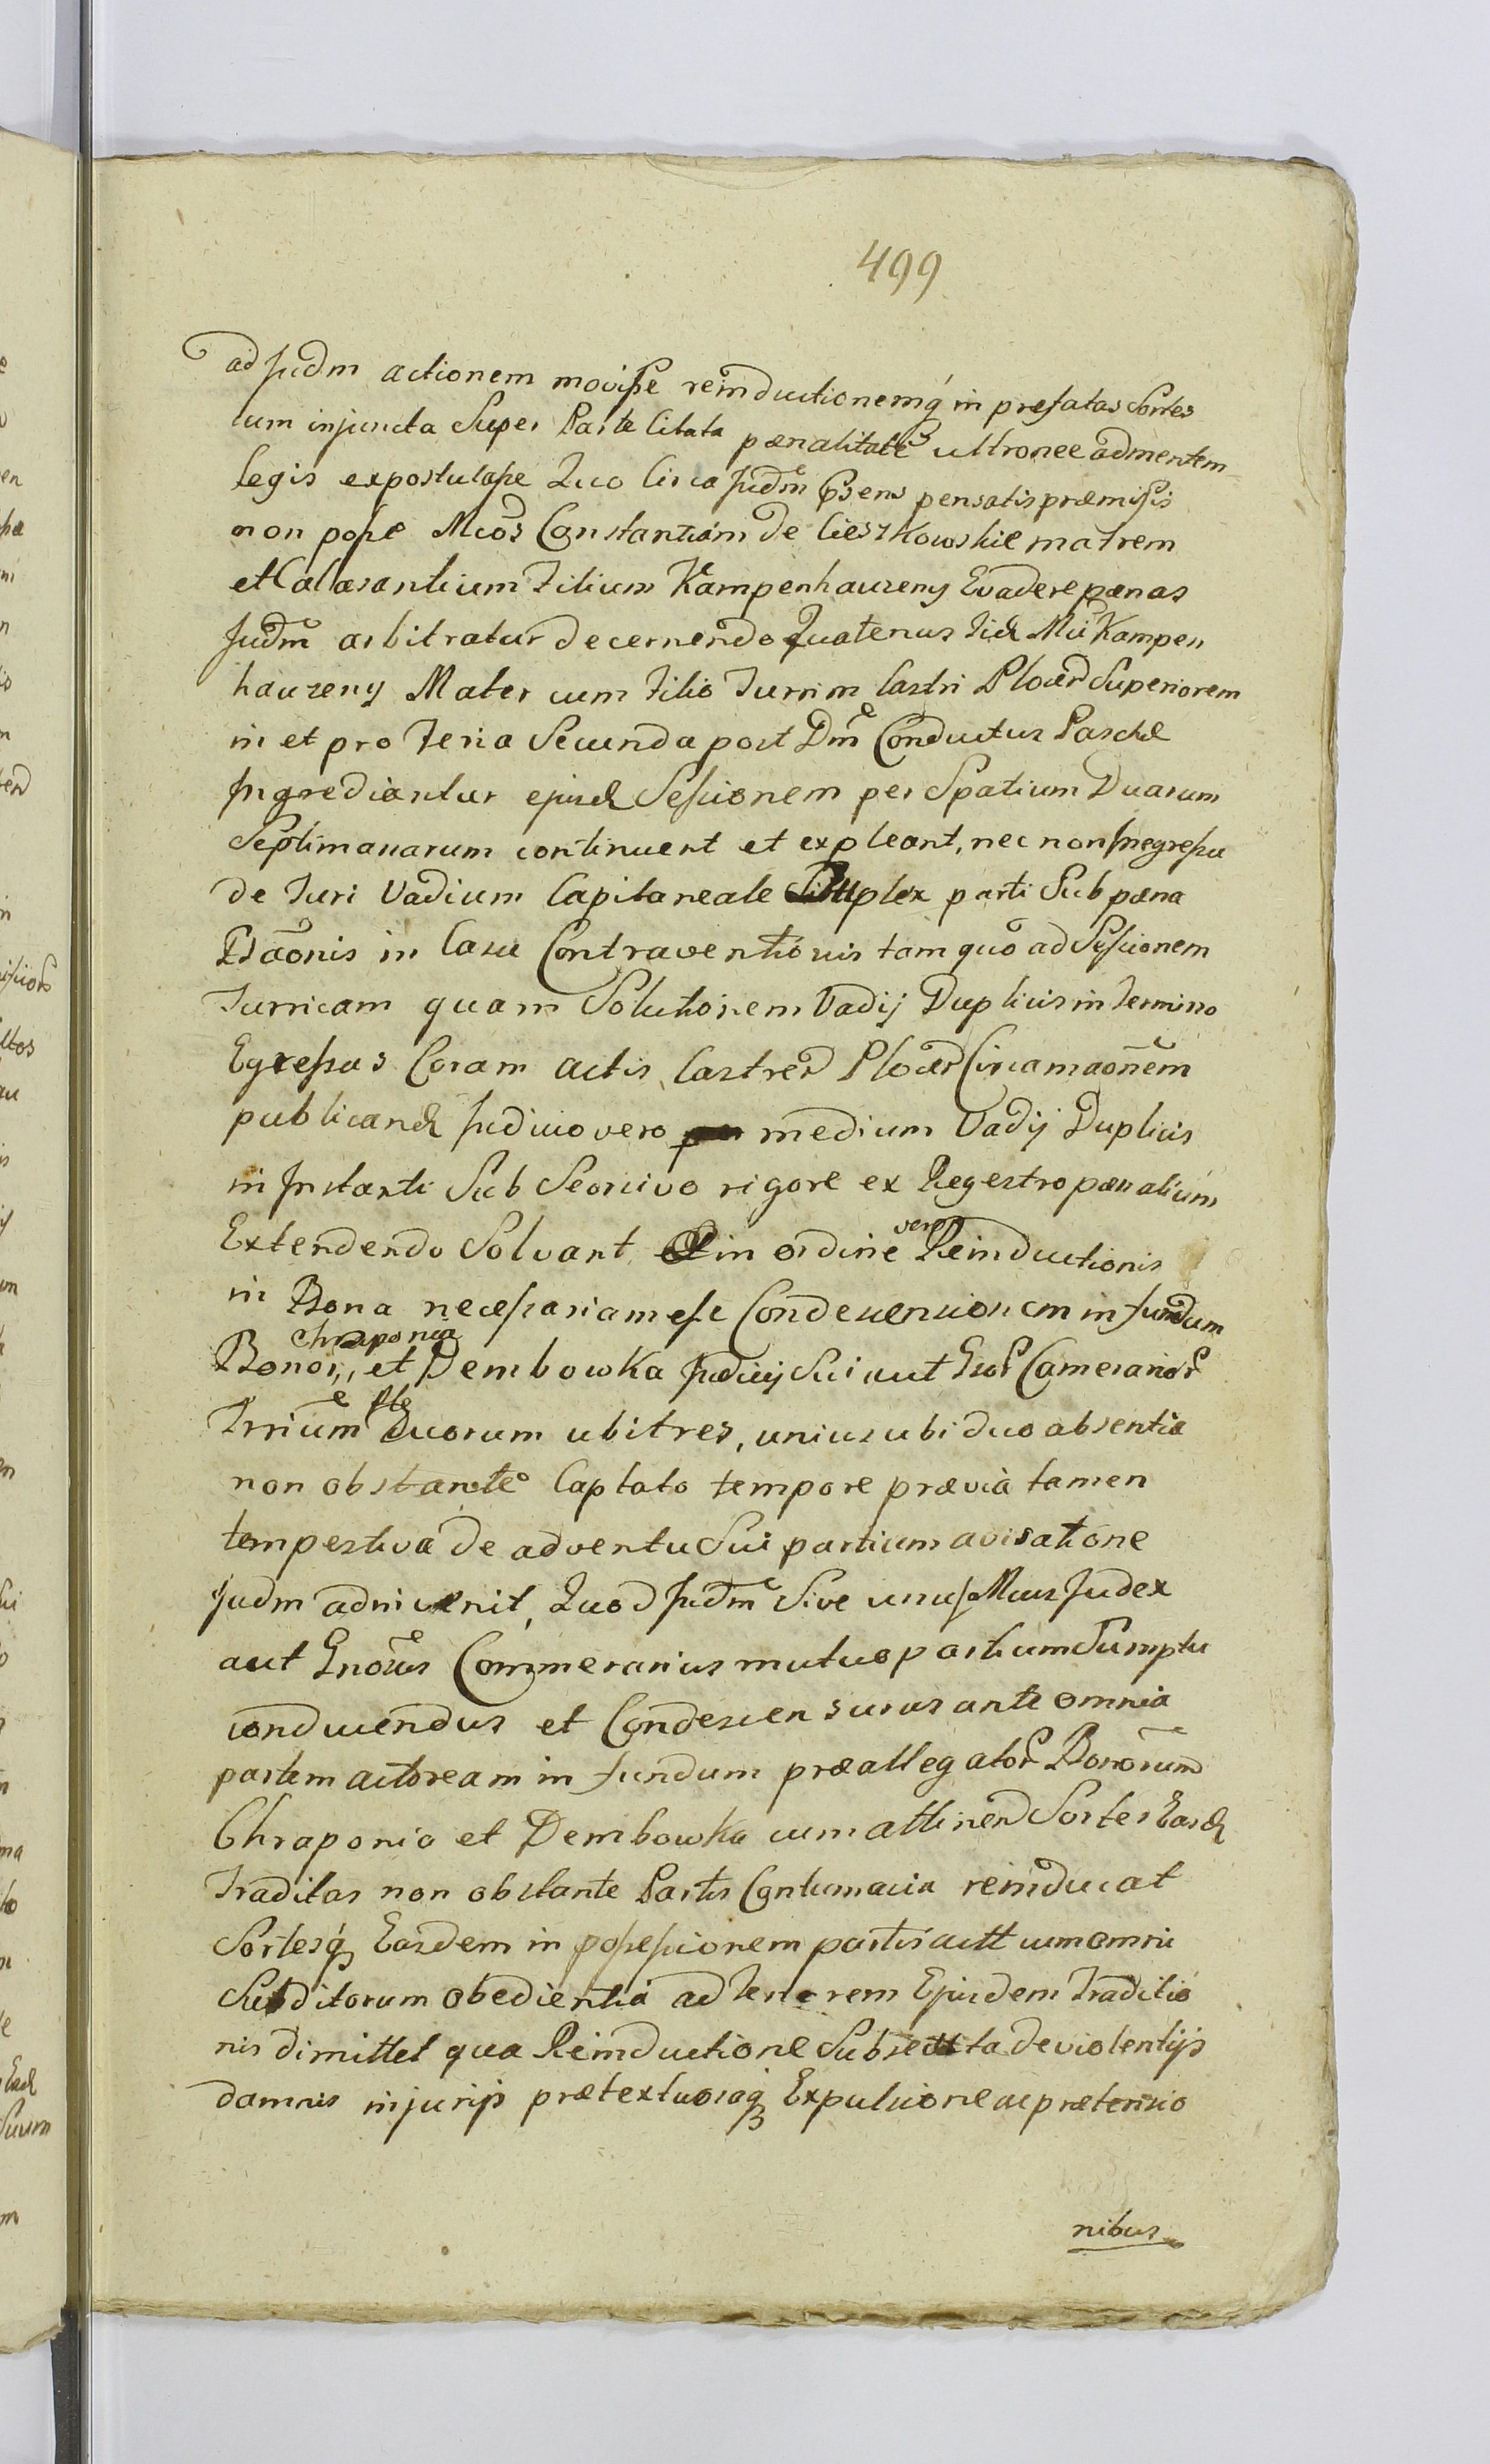 499
ad Judm actionem movisse reinductionemq́ in præfatas Sortes
cum injuncta Super Parte Citata pænalitate ultronee ad mentem
legis expostulasse Quo Circa Judm Psens pensatis præmissis
non posse Mcos Constantiam de Cieszkowskie matrem
et Calasantium Filium Kampenhauzeny Evadere pænas
Judm arbitratur decernendo Quatenus Iid Mci Kampen
hauzeny Mater cum Filio Turrim Castri Plocen Superiorem
in et pro Feria Secunda post Dm Conductus Paschæ
Ingrediantur ejusd Sessionem per Spatium Duarum
Septimanarum continuent et expleant, nec non in egressu
de Turi Vadium Capitaneale Duplex parti Sub pæna
Baonis in Casu Contraventionis tam quo ad Sessionem
Turricam quam Solutionem Vadij Duplicis in Termino
Egressus Coram actis Castren Plocen Circa maonem
publicand Judicio vero medium Vadij Duplicis
in Instanti Sub rigore ex Regestro pænalium
Extendendo Solvant in ordine vero Reinductionis
in Bona necessariam esse Condescensionem in fundum
Bonor, Chraponia et Dembowka Judicij Sui aut Camerarior
Trium Duorum ubi tres, unius ubi duo absentia
non obstante Captato tempore prævia tamen
tempestiva de adventu Sui partium avisatione
Judm adnivenit, Quod Judm Sive unus Mcus Judex
aut Gnosus Commerarius mutuo partium Sumptu
conducendus et Condescensurus ante omnia
partem actoream in fundum præallegator Bonorum
Chraponia et Dembowka cum attinen Sortes Easd
Traditas non obstante Partis Contumacia reinducat
Sortesq́ Easdem in possessionem partis actt cum omni
Subditorum obedientia ad Tenorem Ejusdem Traditio
nis dimittet qua Reinductione Subsecuta de violentijs
damnis injurijs prætextuosaq́ Expulsione ac prætensio
nibus